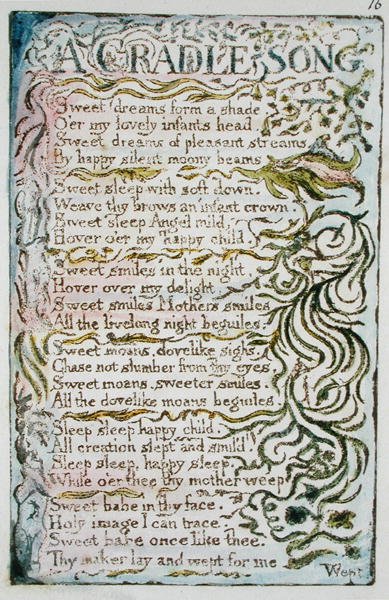 16
A CRADLE SONG
Sweet dreams form a shade
O'er my lovely infants head.
Sweet dreams of pleasant streams
By happy silent moony beams
Sweet sleep with soft down.
Weave thy brows an infant crown.
Sweet sleep Angel mild,
Hover o'er my happy child.
Sweet smiles in the night,
Hover over my delight.
Sweet smiles Mothers smiles
All the livelong night beguiles.
Sweet moans, dovelike sighs,
Chase not slumber from thy eyes,
Sweet moans, sweeter smiles,
All the dovelike moans beguiles.
Sleep sleep happy child.
All creation slept and smil'd.
Sleep sleep, happy sleep,
While o'er thee thy mother weep
Sweet babe in thy face,
Holy image I can trace.
Sweet babe once like thee,
Thy maker lay and wept for me
Wept